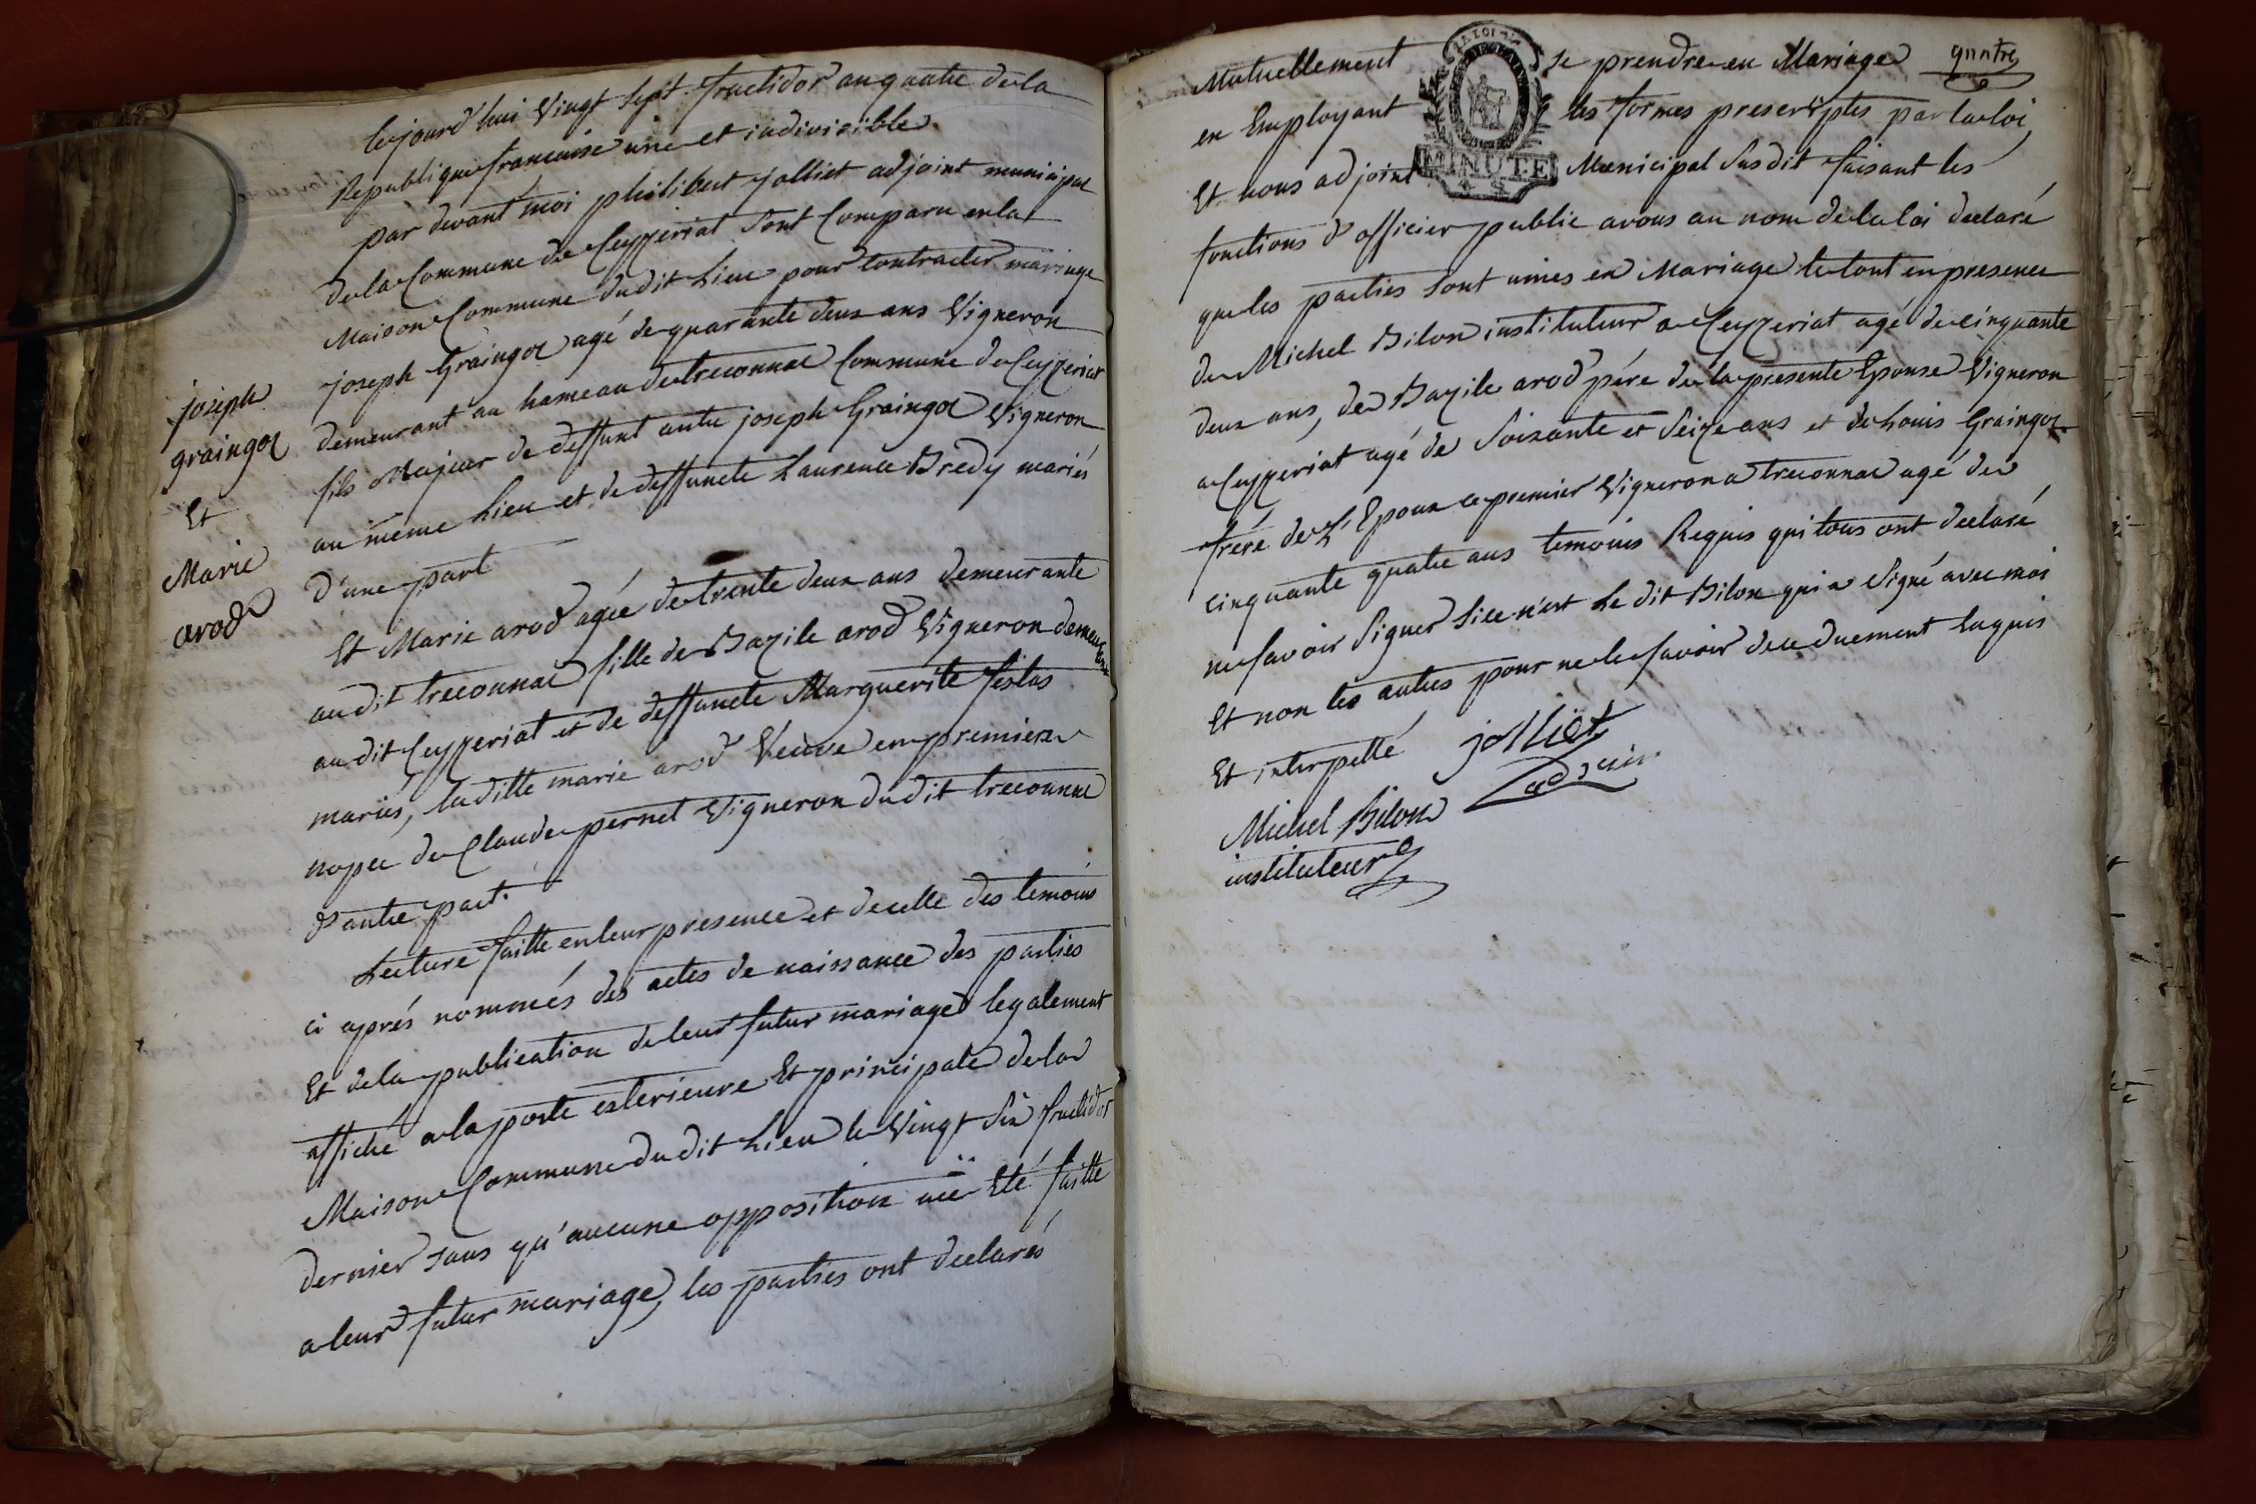 joseph
graingor
Et
Marie
arod
Cejourd'hui Vingt Sept fructidor an quatre de la
Republique francaise une et indivisible
par devant moi philibert jolliet adjoint municipal
de la Commune de Ceyzeriat Sont Comparu en la
Maison Commune dudit Lieu pour Contracter mariage
joseph Graingor agé de quarante deux ans Vigneron
demeurant au hameau de treconnac Commune de Ceyzeriat
fils Majeur de deffunt autre joseph Graingor Vigneron
au même Lieu et de deffuncte Laurence Bredy mariés
d'une part
Et Marie arod agée de trente deux ans demeurante
au dit treconnac fille de Bazile arod Vigneron demeurant
au dit Ceyzeriat et de deffuncte Marguerite festas
mariés, laditte marie arod Veuve en premiere
nopce de Claude pernet Vigneron du dit treconnac
d'autre part.
Lecture faitte en leur presence et de celle des temoins
ci aprés nommés des actes de naissance des parties
Et de la publication de leur futur mariage legalement
affiche a la porte exterieure Et principale de la
Maison Commune du dit Lieu le Vingt Six fructidor
dernier sans qu'aucune opposition aië Eté faitte
a leur futur mariage, les parties ont declarés
Mutuellement se prendre en Mariage quatre
en Employant les formes prescriptes par la loi,
LA LOI
MINUTE
Et nous adjoint Municipal Susdit faisant les
fonctions d'officier public avons au nom de la loi declaré
que les parties sont unies en Mariage le tout en presence
de Michel Bilon instituteur a Ceyzeriat agé de cinquante
deux ans, de Bazile arod pére de la presente Epouse Vigneron
a Ceyzeriat agé de Soixante et Seize ans et de Louis Graingor
frére de L'Epoux ce premier Vigneron a treconnac agé de
cinquante quatre ans temoins Requis qui tous ont declaré
ne savoir Signer Si ce n'est Le dit Bilon qui a Signé avec moi
Et non les autres pour ne le savoir de ce duement Enquis
Et interpellé jolliet
Michel Bilon
instituteur